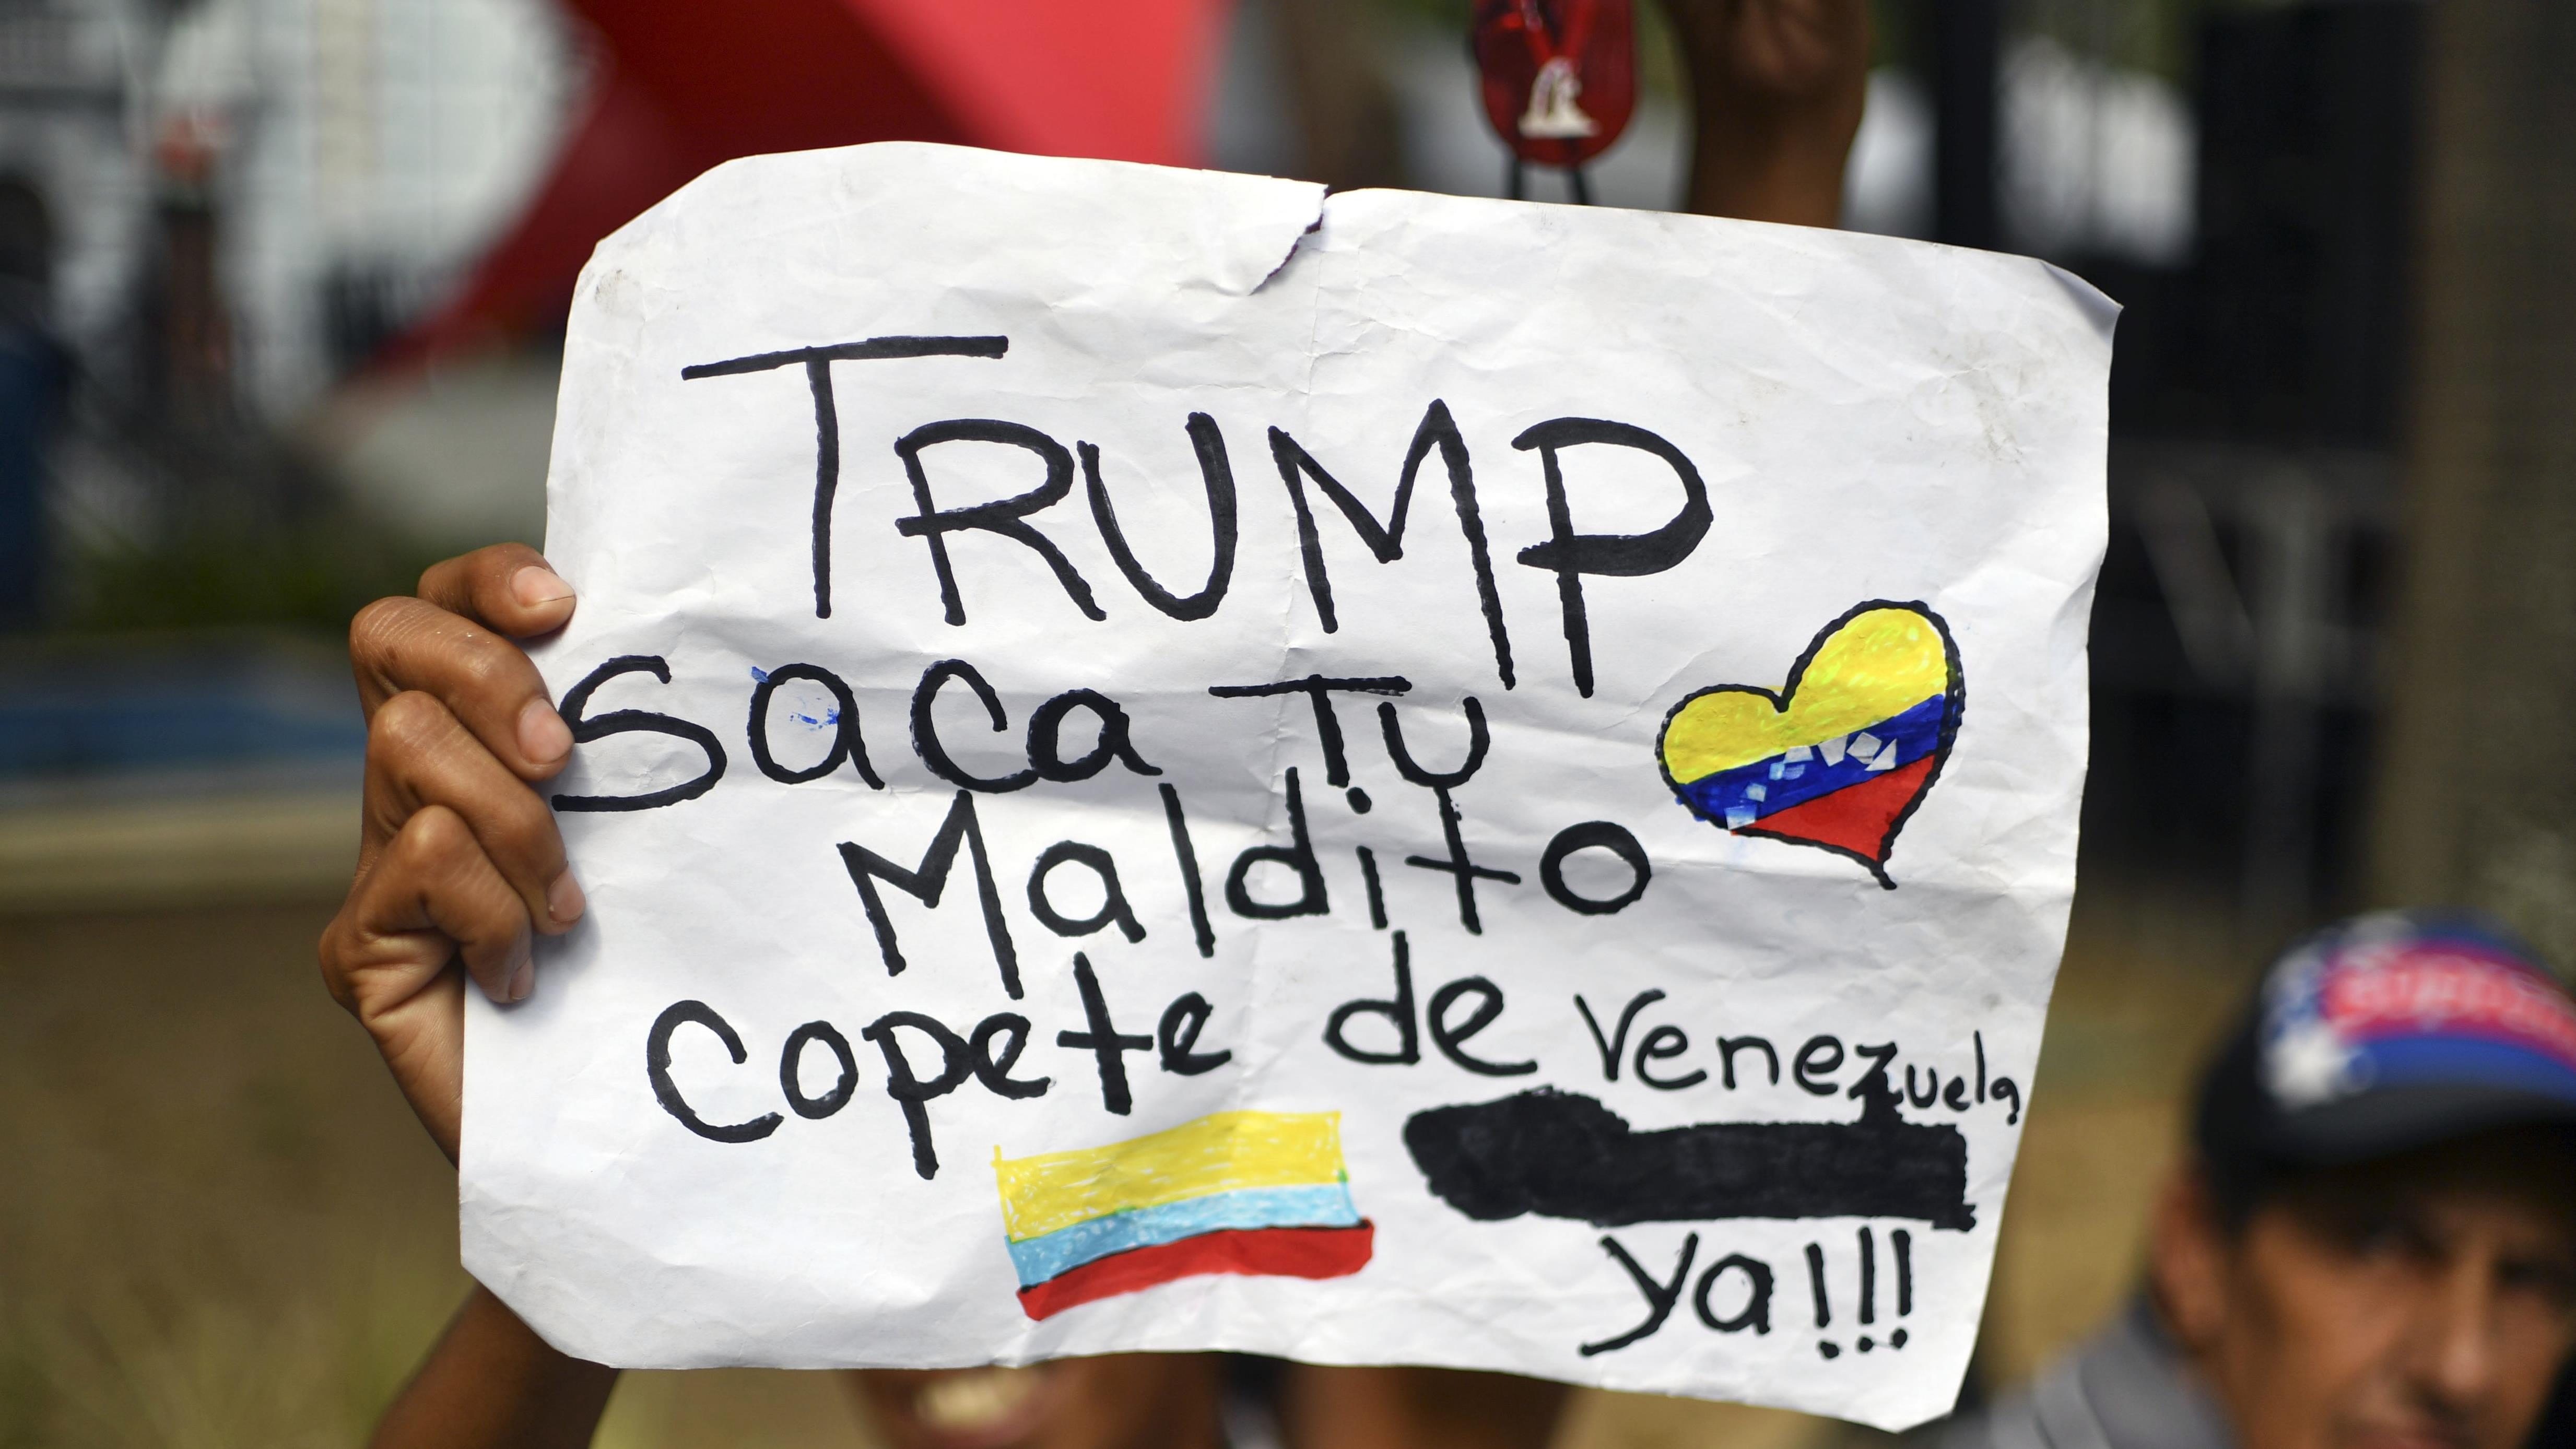 TRUMP
saca TU
Maldito
copete de Venezuela
ya!!!